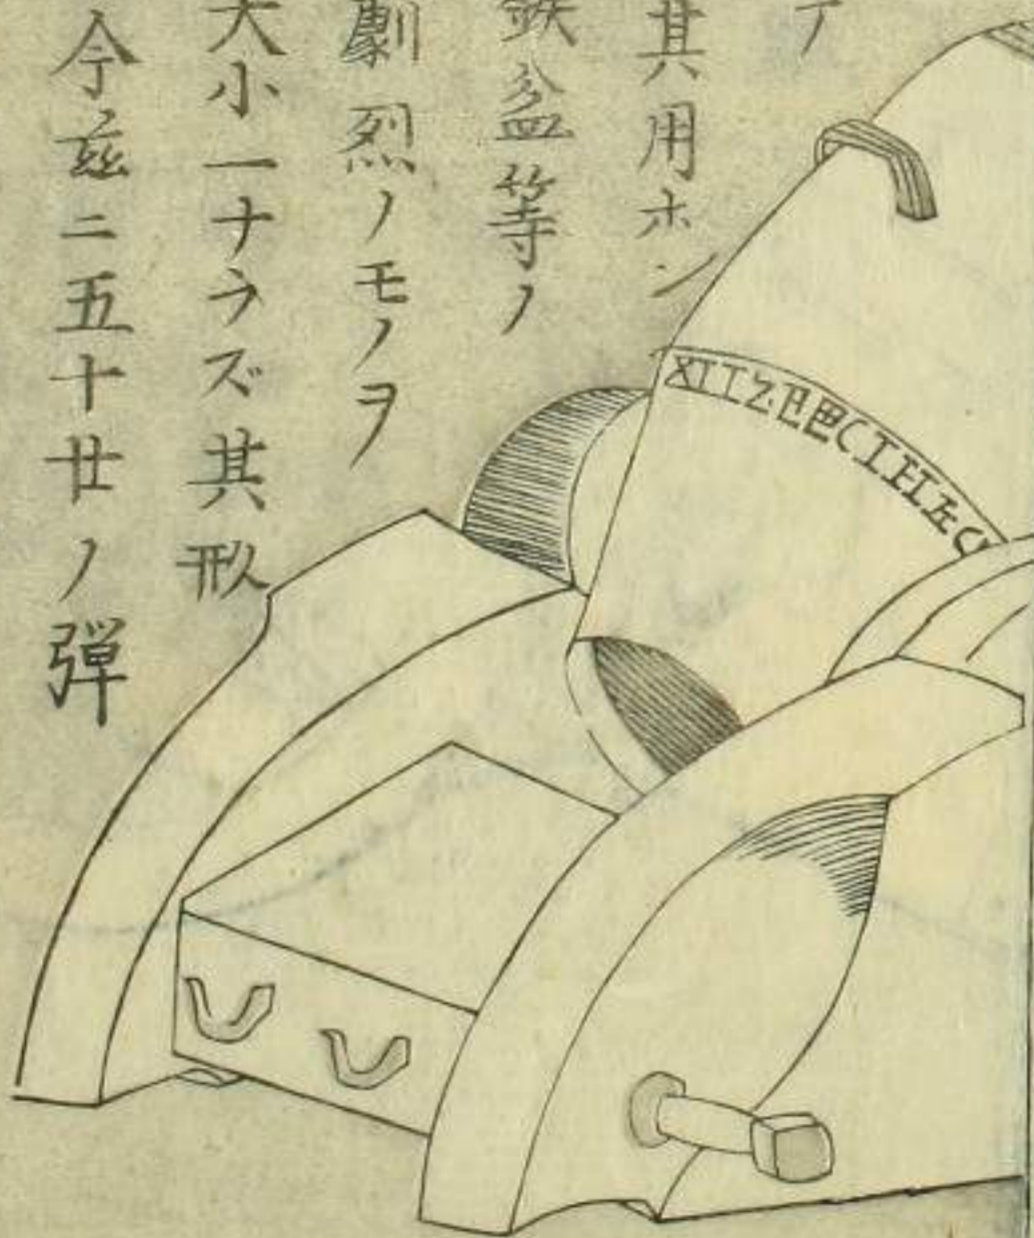 テ
其用ホン
鉄盆等ノ
劇烈ノモノヲ
大小一ナラズ其形
今茲ニ五十廿ノ弾